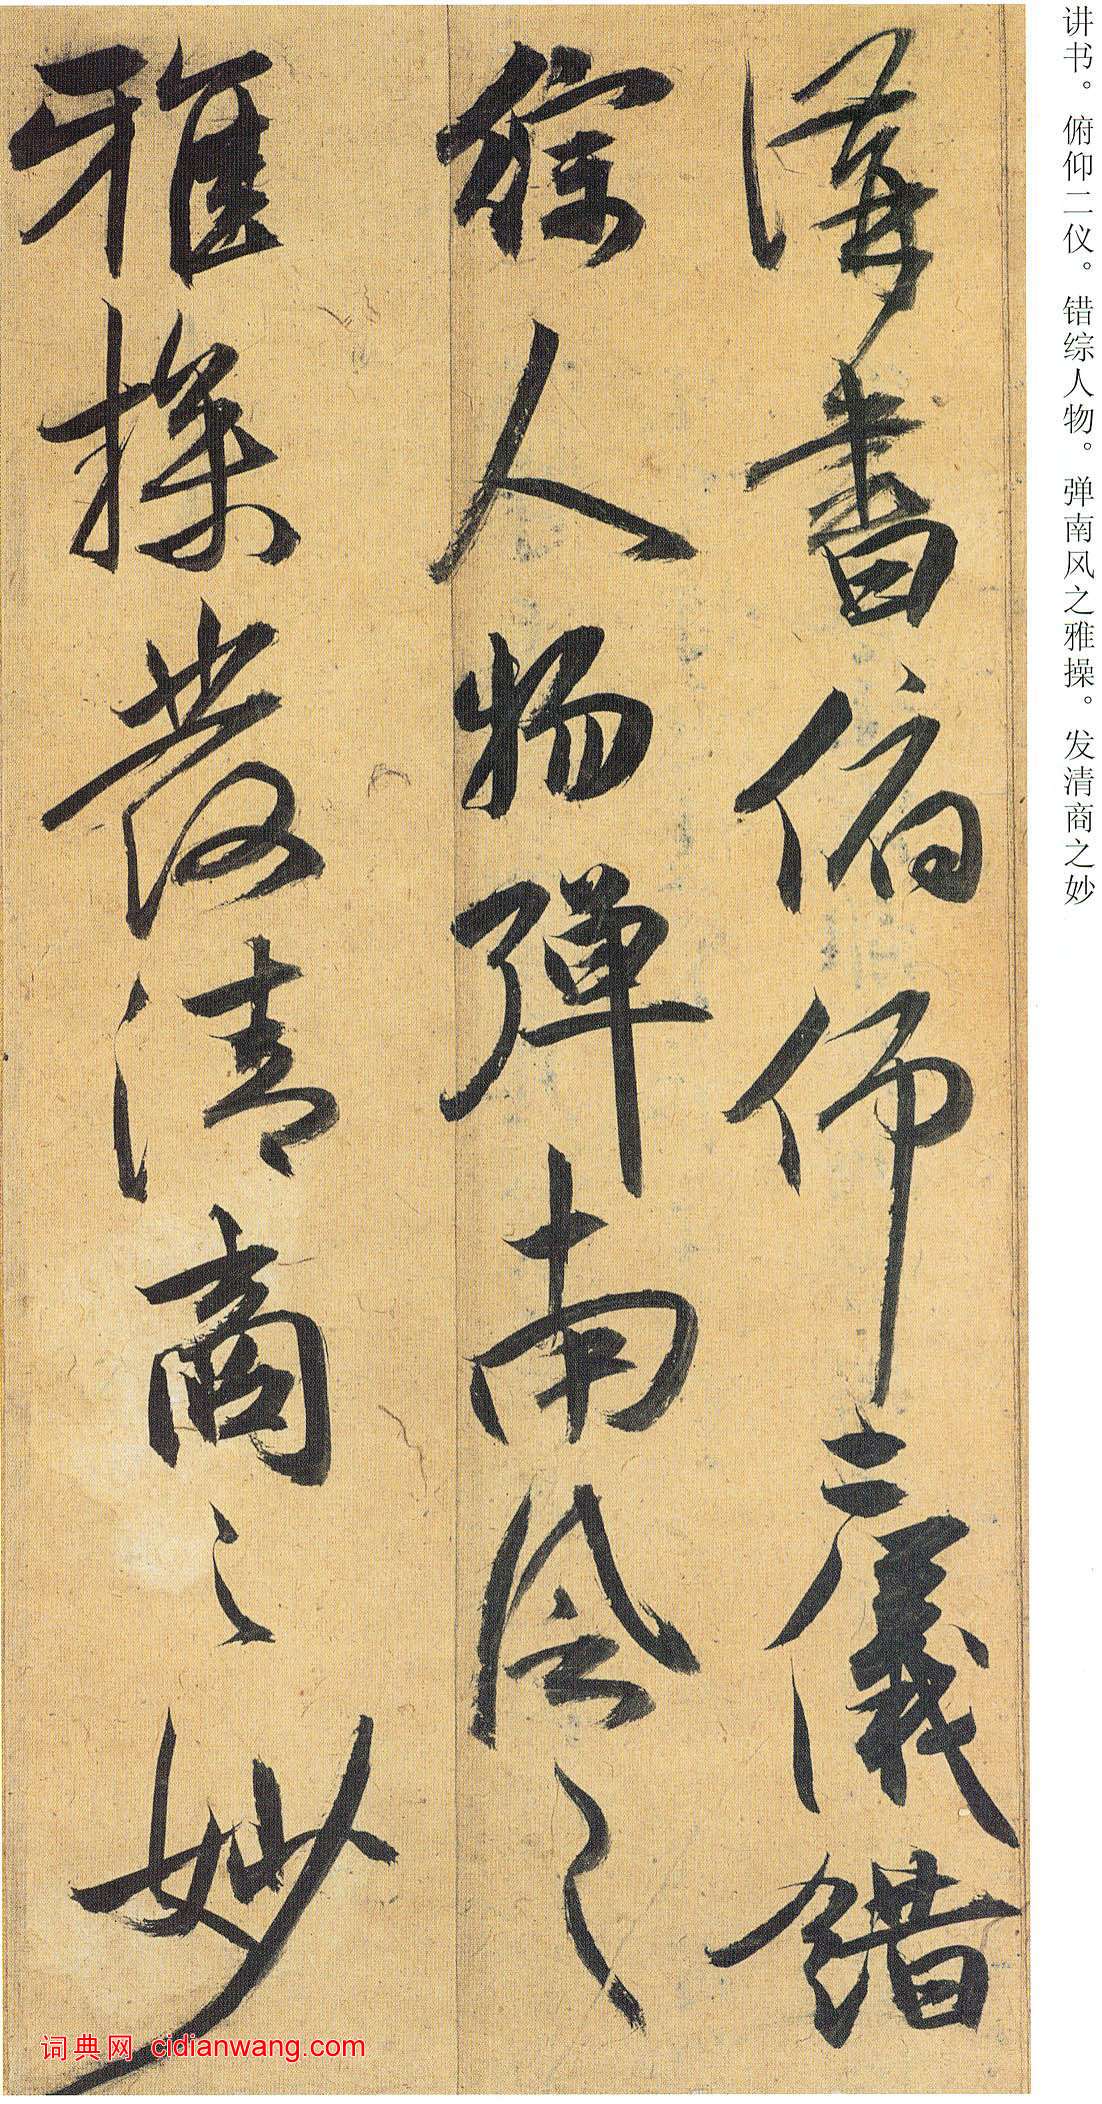 讲书。俯仰二仪。错综人物。弹南风之雅操。发清商之妙
講書俯仰二儀錯
綜人物彈南風之
雅操發清商之妙
词典网 cidianwang.com